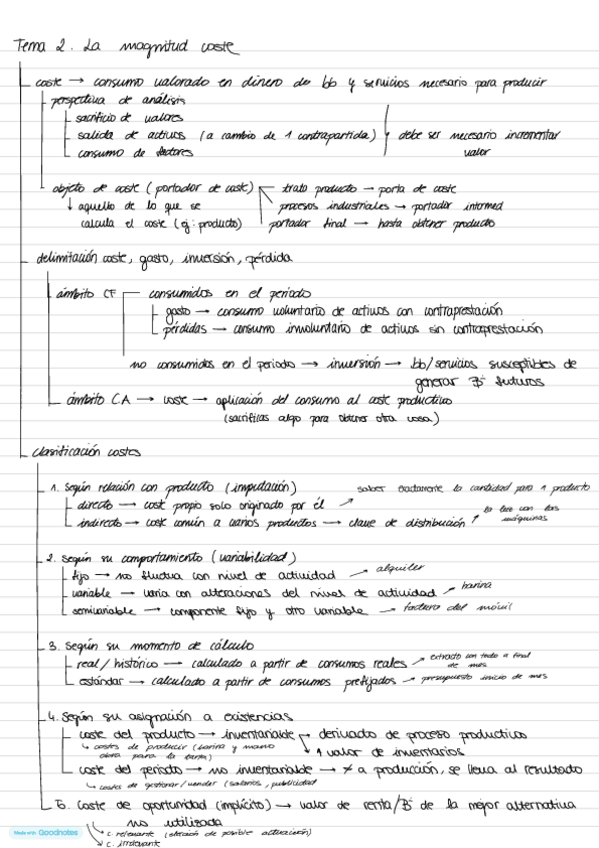 Tema 2. La magnitud coste
coste → consumo valorado en dinero de bb y servicios necesario para producir
perspectiva de análisis
sacrificio de valores
salida de activos (a cambio de 1 contrapartida) debe ser necesario incrementar
consumo de factores valor
objeto de coste (portador de coste) trato producto → porta de coste
↓ aquello de lo que se procesos industriales → portador intermed
calcula el coste (ej: producto) portador final → hasta obtener producto
delimitación coste, gasto, inversión, pérdida
ámbito CF consumidos en el periodo
gasto → consumo voluntario de activos con contraprestación
pérdidas → consumo involuntario de activos sin contraprestación
no consumidos en el periodo → inversión → bb/servicios susceptibles de
generar Bº futuros
ámbito CA → coste → aplicación del consumo al coste productivo
(sacrificas algo para obtener otra cosa)
clasificación costes
1. según relación con producto (imputación) saber exactamente la cantidad para 1 producto
directo → coste propio solo originado por él
indirecto → coste común a varios productos → clave de distribución la luz con las
máquinas
2. según su comportamiento (variabilidad)
fijo → no fluctua con nivel de actividad → alquiler
variable → varia con alteraciones del nivel de actividad → harina
semivariable → componente fijo y otro variable → factura del móvil
3. según su momento de cálculo
real/histórico → calculado a partir de consumos reales → extracto con todo a final
de mes
estándar → calculado a partir de consumos prefijados → presupuesto inicio de mes
4. según su asignación a existencias
coste del producto → inventariable → derivado de proceso productivo
↳ costes de producir (harina y mano ↓ 1 valor de inventarios
obra para la tarta)
coste del periodo → no inventariable → ≠ a producción, se lleva al resultado
↳ costes de gestionar/vender (salarios, publicidad
5. Coste de oportunidad (implícito) → valor de renta/Bº de la mejor alternativa
no utilizada
c. relevante (elección de posible actuación)
c. irrelevante
Made with Goodnotes